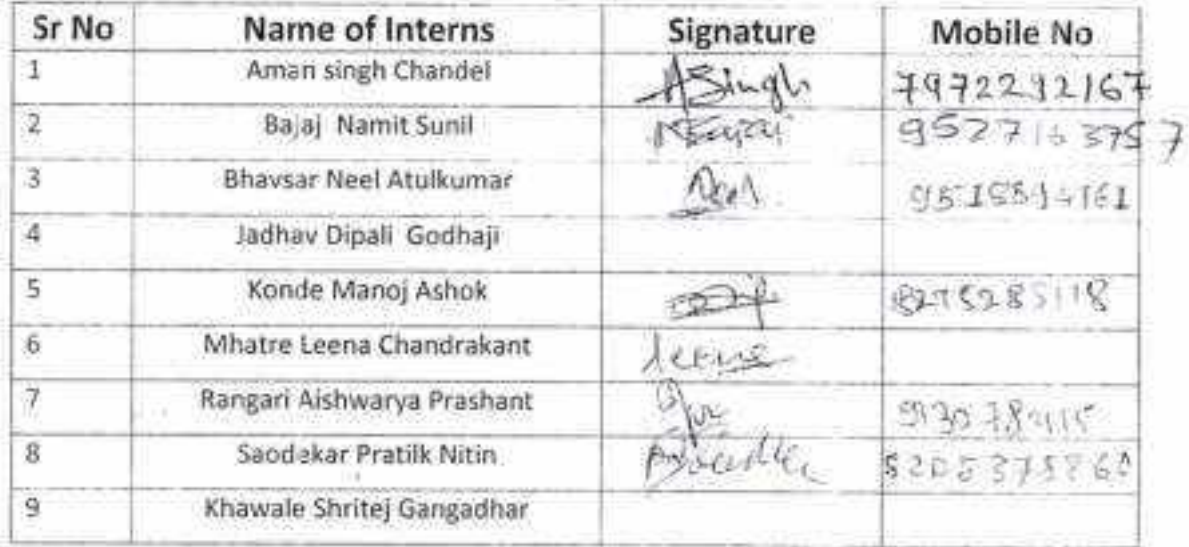 Sr No Name of Interns Signature Mobile No
1 Aman singh Chandel ASingh 7972292167
2 Bajaj Namit Sunil NBajaj 9527163757
3 Bhavsar Neel Atulkumar Neel
4 Jadhav Dipali Godhaji
5 Konde Manoj Ashok 8275285118
6 Mhatre Leena Chandrakant
7 Rangari Aishwarya Prashant
8 Saodekar Pratilk Nitin
9 Khawale Shritej Gangadhar